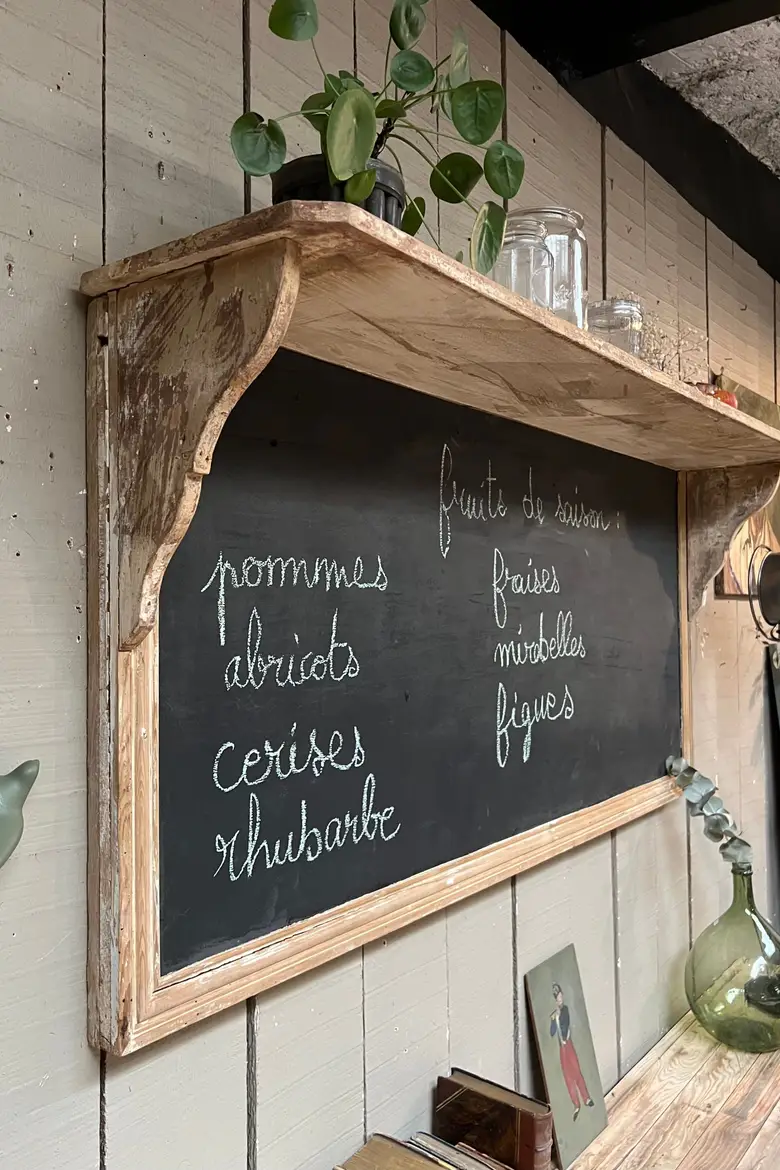 fruits de saison :
pommes
abricots
cerises
rhubarbe
fraises
mirabelles
figues